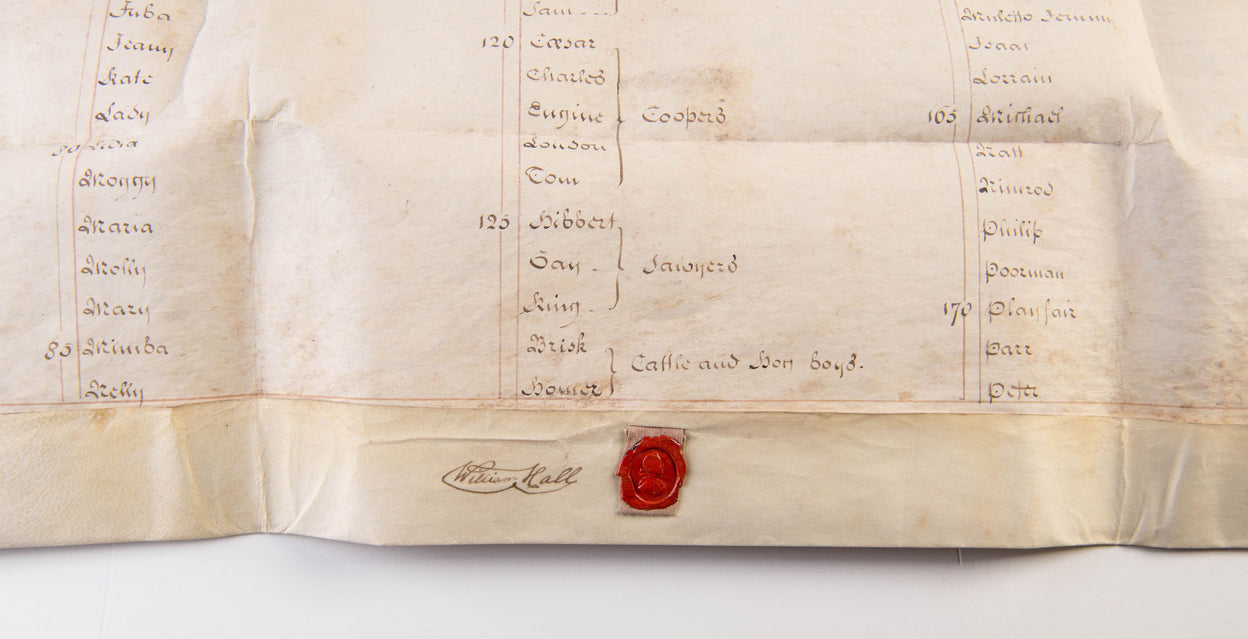 Juba
Jeany
Kate
Lady
80
Moggy
Maria
Molly
Mary
85 Mimba
Nelly
Sam
120 Cæsar
Charles
Eugine
London
Tom
Coopers
125 Hibbert
Gay
King
Sawyers
Brisk
Homer
Cattle and Hog boys.
Muletto Jemmy
Isaac
Lorrain
165 Michael
Natt
Nimrod
Philip
Poorman
170 Playfair
Parr
Peter
William Hall